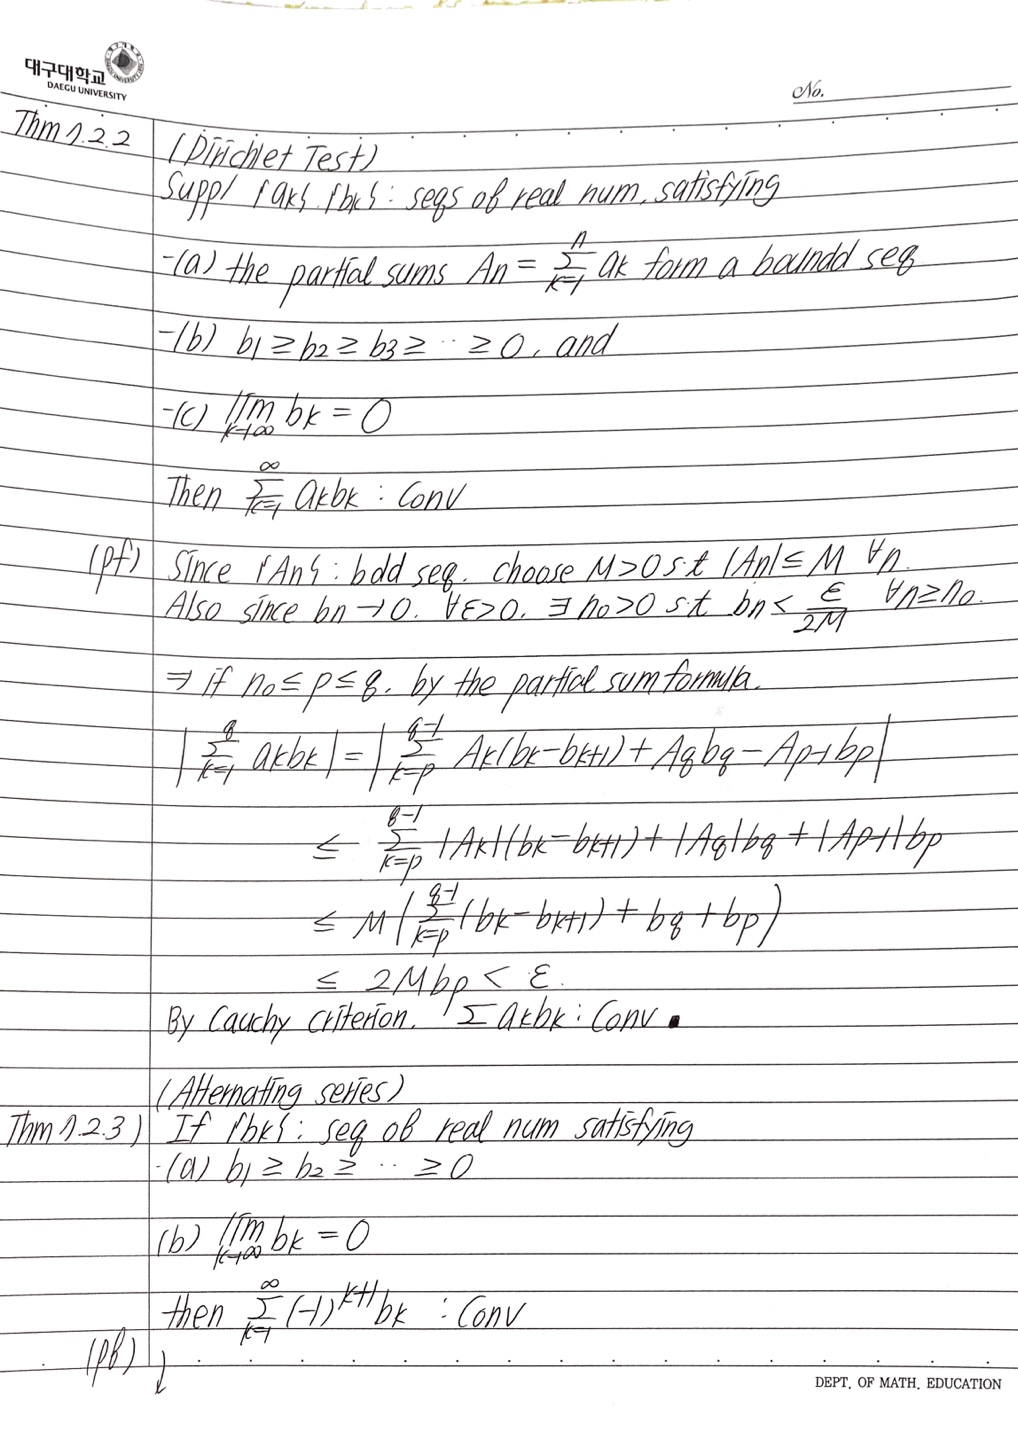 대구대학교
DAEGU UNIVERSITY
No.
Thm 1.2.2
(Dirichlet Test)
Supp/ {ak}, {bk} : seqs of real num, satisfying
-(a) the partial sums An = Σ_{k=1}^{n} ak form a boundd seq
-(b) b1 ≥ b2 ≥ b3 ≥ ·· ≥ 0, and
-(c) lim_{k→∞} bk = 0
Then Σ_{k=1}^{∞} akbk : Conv
(pf) Since {An} : bdd seq. choose M>0 s.t |An| ≤ M ∀n.
Also since bn → 0. ∀ε>0. ∃ n0>0 s.t bn < ε/2M ∀n≥n0.
⇒ if n0 ≤ p ≤ q. by the partial sum formula.
|Σ_{k=1}^{q} akbk| = |Σ_{k=p}^{q-1} Ak(bk-bk+1) + Aqbq - Ap-1bp|
≤ Σ_{k=p}^{q-1} |Ak|(bk-bk+1) + |Aq|bq + |Ap-1|bp
≤ M(Σ_{k=p}^{q-1} (bk-bk+1) + bq + bp)
≤ 2Mbp < ε.
By Cauchy criterion. Σ akbk : Conv ■
(Alternating series)
Thm 1.2.3) If {bk} : seq of real num satisfying
-(a) b1 ≥ b2 ≥ ·· ≥ 0
(b) lim_{k→∞} bk = 0
then Σ_{k=1}^{∞} (-1)^{k+1} bk : Conv
(pf) ↓
DEPT. OF MATH. EDUCATION